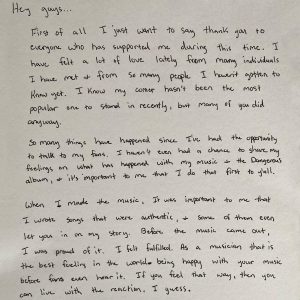 Hey guys...
First of all I just want to say thank you to
everyone who has supported me during this time. I
have felt a lot of love lately from many individuals
I have met + from so many people I haven't gotten to
know yet. I know my corner hasn't been the most
popular one to stand in recently, but many of you did
anyway.
So many things have happened since I've had the opportunity
to talk to my fans. I haven't even had a chance to share my
feelings on what has happened with my music + the Dangerous
album, + it's important to me that I do that first to y'all.
When I made the music, It was important to me that
I wrote songs that were authentic, + some of them even
let you in on my story. Before the music came out,
I was proud of it. I felt fulfilled. As a musician that is
the best feeling in the world being happy with your music
before fans even hear it. If you feel that way, then you
can live with the reaction, I guess.